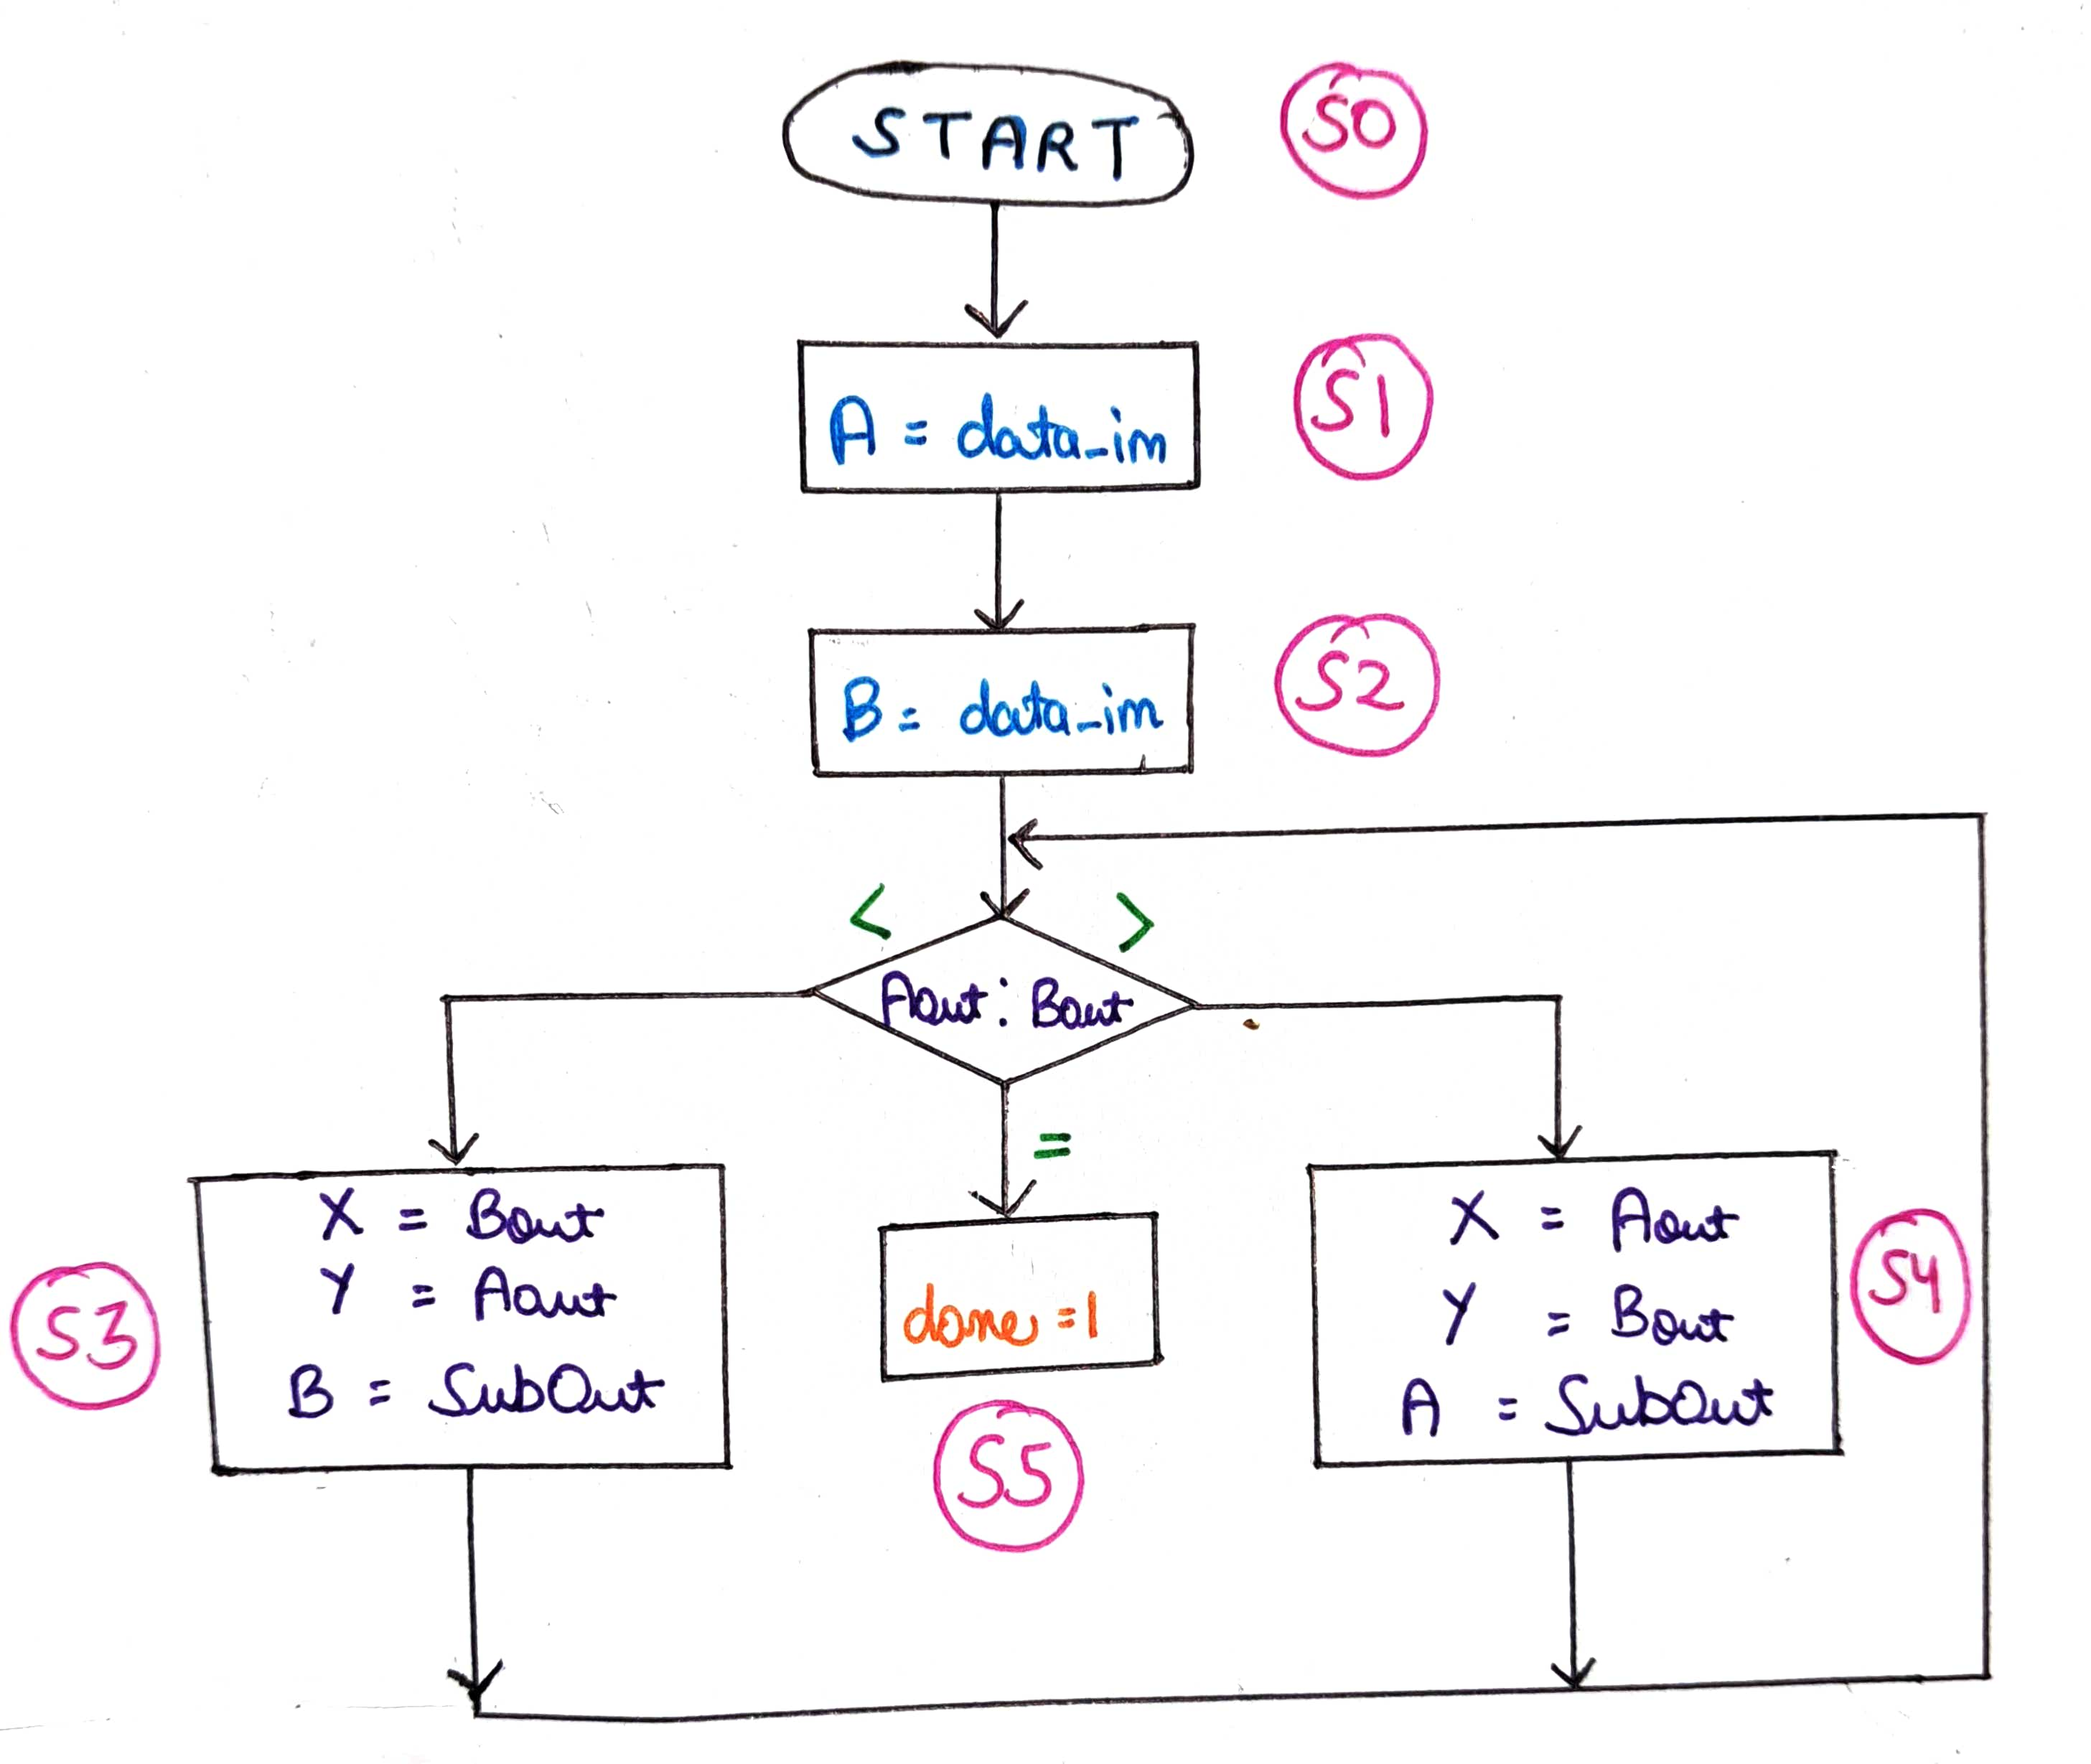 START
S0
A = data_in
S1
B = data_in
S2
<
>
Aout : Bout
=
X = Bout
Y = Aout
B = SubOut
S3
done = 1
S5
X = Aout
Y = Bout
A = SubOut
S4